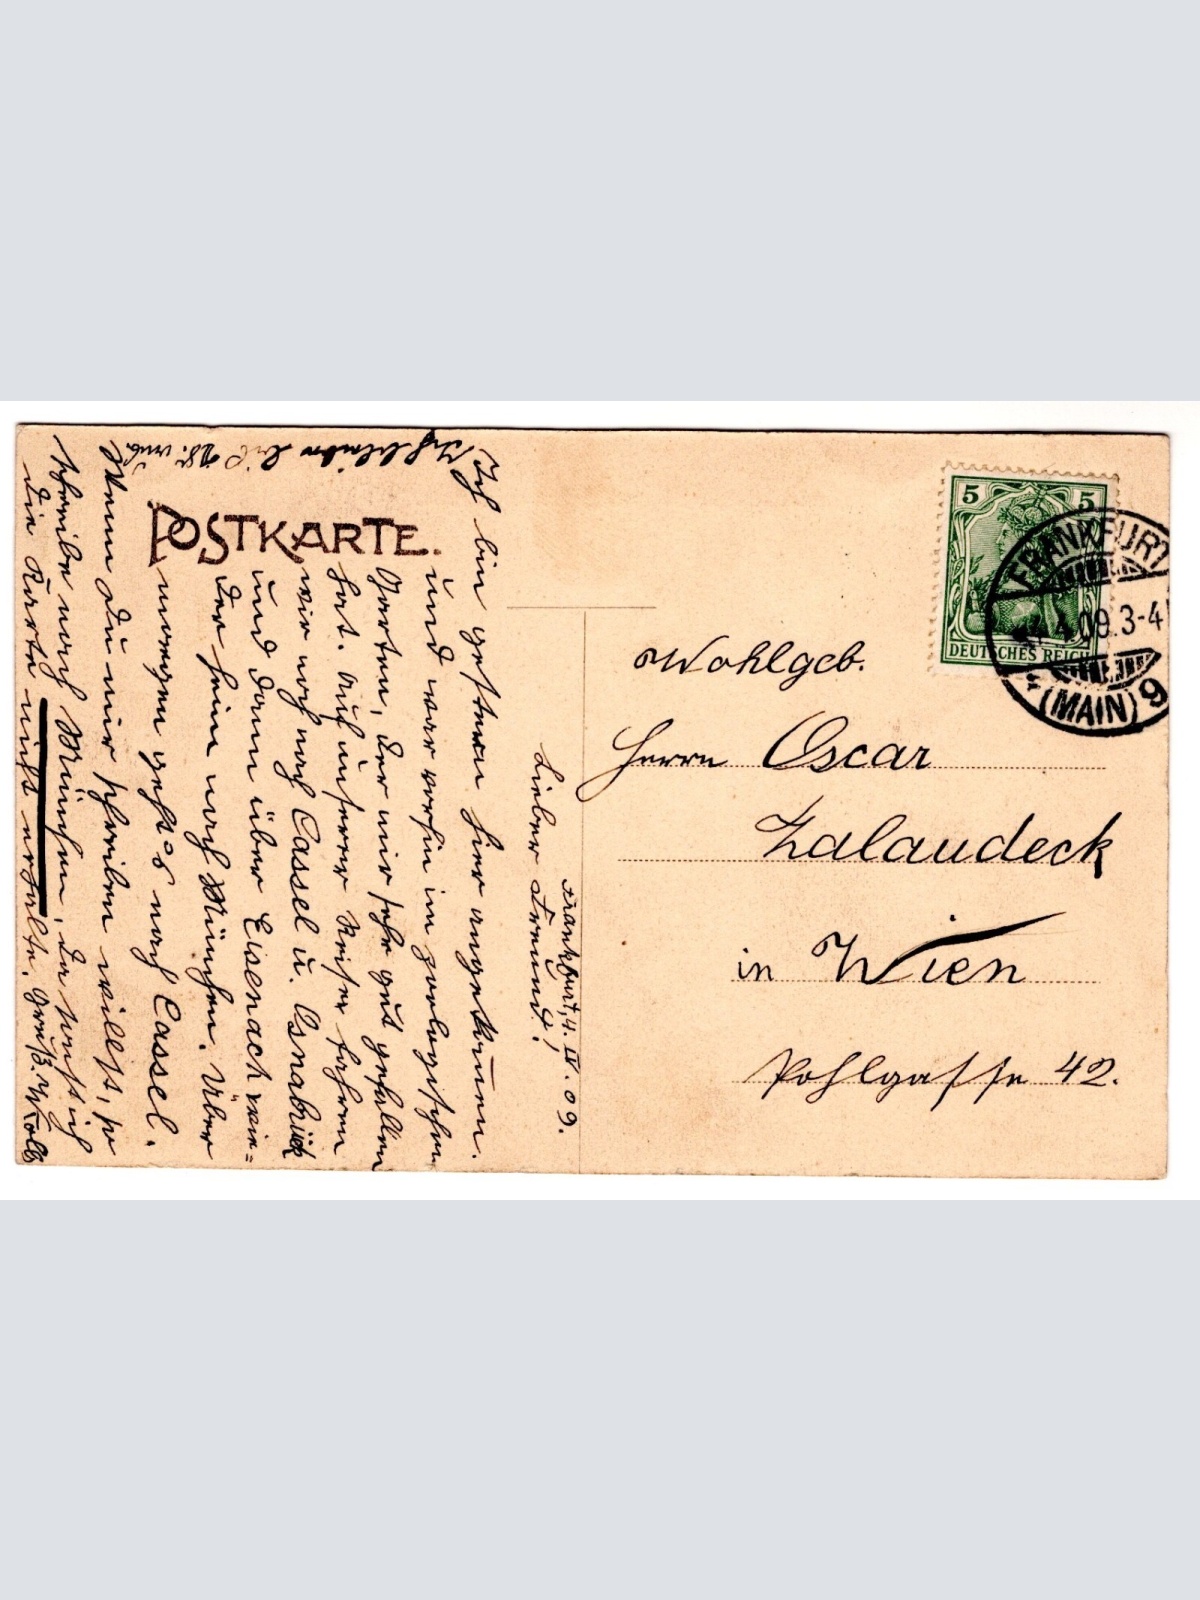 POSTKARTE.
Frankfurt, 4. IV. 09.
Lieber Freund!
Ich bin gestern hier angekom̅en.
Und war vorhin im zoologischen
Garten, der mir sehr gut gefallen
hat. Auf unserer Reise fahren
wir noch nach Cassel u. Osnabrück
und dann über Eisenach wie=
der heim nach München. Über
morgen geht's nach Cassel.
Wenn du mir schreiben willst, so
schreibe nach München, da sonst ich
die Karte nicht erhalte. Gruß. Kolb
5 5
DEUTSCHES REICH
FRANKFURT
4.09.3-4
(MAIN) 9
Wohlgeb.
Herrn Oscar
Zalaudeck
in Wien
Pohlgasse 42.